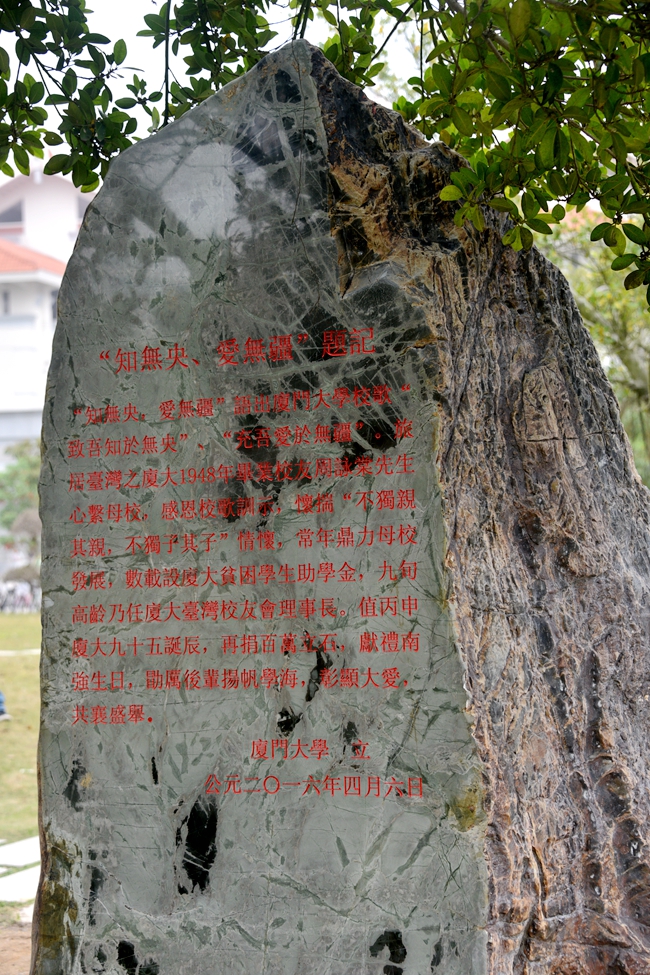 “知無央、愛無疆”題記
“知無央、愛無疆”語出廈門大學校歌“
致吾知於無央”、“充吾愛於無疆”。旅
居臺灣之廈大1948年畢業校友周詠棠先生
心繫母校，感恩校歌訓示，懷揣“不獨親
其親，不獨子其子”情懷，常年鼎力母校
發展，數載設廈大貧困學生助學金，九旬
高齡乃任廈大臺灣校友會理事長。值丙申
廈大九十五誕辰，再捐百萬立石，獻禮南
強生日，勖厲後輩揚帆學海，彰顯大愛，
共襄盛舉。
廈門大學 立
公元二〇一六年四月六日